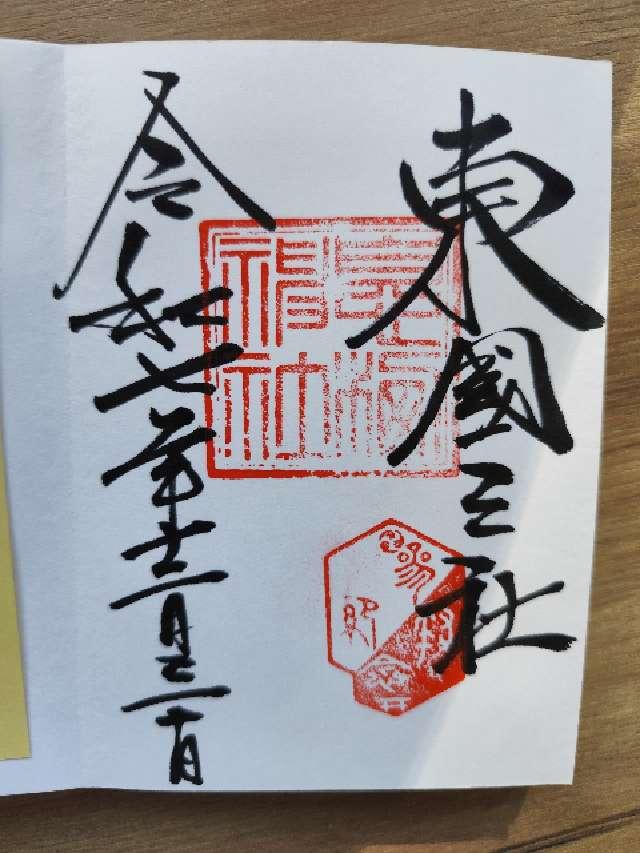 東國三社
息栖神社
令和七年十二月三十日